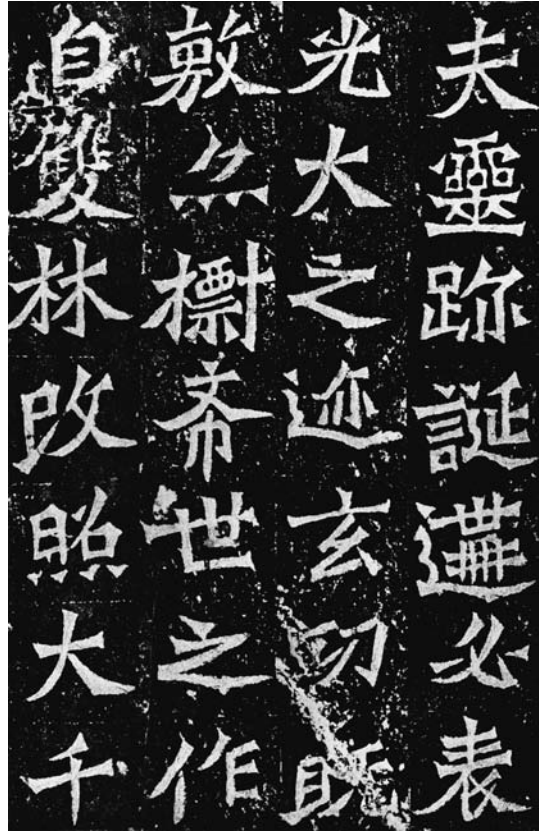 夫靈跡誕遘必表
光大之迹玄功既
敷亦標希世之作
自雙林改照大千